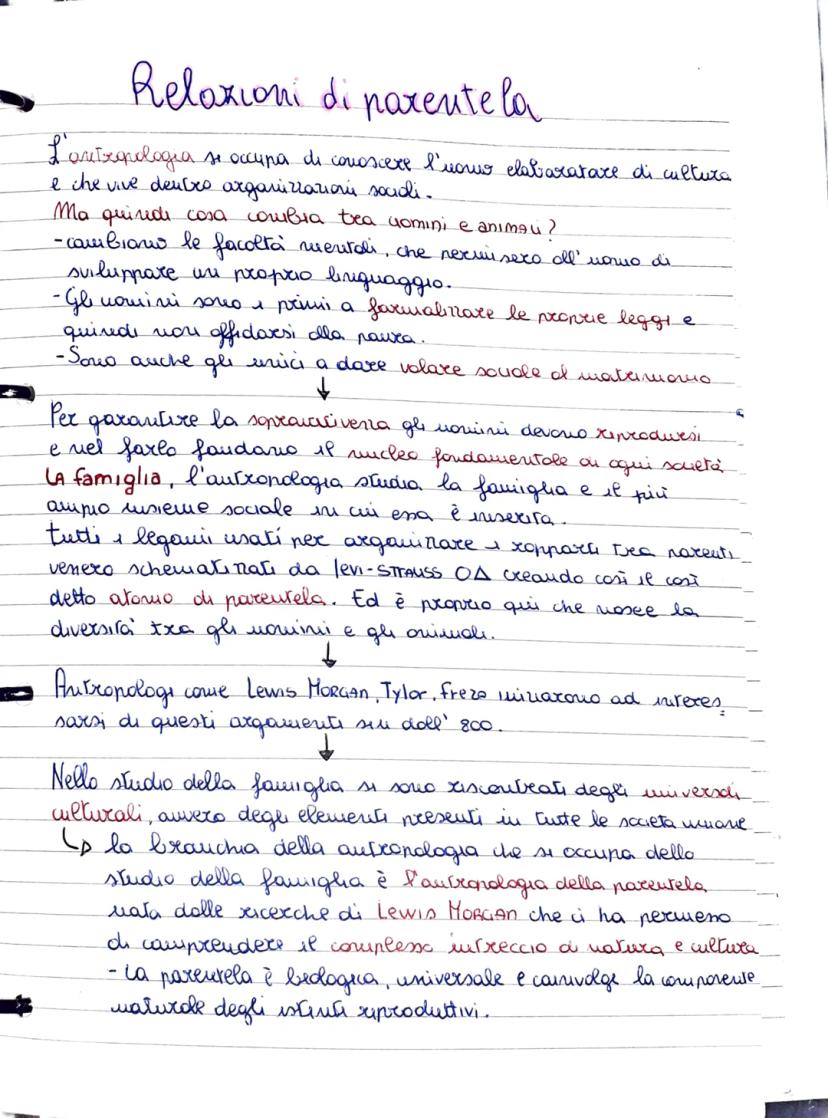 Relazioni di parentela
L'antropologia si occupa di conoscere l'uomo elaboratore di cultura
e che vive dentro organizzazioni sociali.
Ma quindi cosa cambia tra uomini e animali?
-cambiano le facoltà mentali, che permisero all'uomo di
sviluppare un proprio linguaggio.
-Gli uomini sono i primi a formalizzare le proprie leggi e
quindi non affidarsi alla paura.
-Sono anche gli unici a dare valore sociale al matrimonio
↓
Per garantire la sopravvivenza gli uomini devono riprodursi
e nel farlo fondano il nucleo fondamentale di ogni società
LA famiglia, l'antropologia studia la famiglia e il più
ampio insieme sociale in cui essa è inserita.
tutti i legami usati per organizzare i rapporti tra parenti
venero schematizzati da levi-STRAUSS O∆ creando così il così
detto atomo di parentela. Ed è proprio qui che nasce la
diversità tra gli uomini e gli animali.
↓
Antropologi come Lewis MORGAN, Tylor, Freze iniziarono ad interes_
sarsi di questi argomenti sin dall' 800.
↓
Nello studio della famiglia si sono riscontrati degli universali
culturali, ovvero degli elementi presenti in tutte le società umane
↳ la branchia della antropologia che si occupa dello
studio della famiglia è l'antropologia della parentela
nata dalle ricerche di Lewis MORGAN che ci ha permesso
di comprendere il complesso intreccio di natura e cultura
- La parentela è biologica, universale e coinvolge la componente
naturale degli istinti riproduttivi.